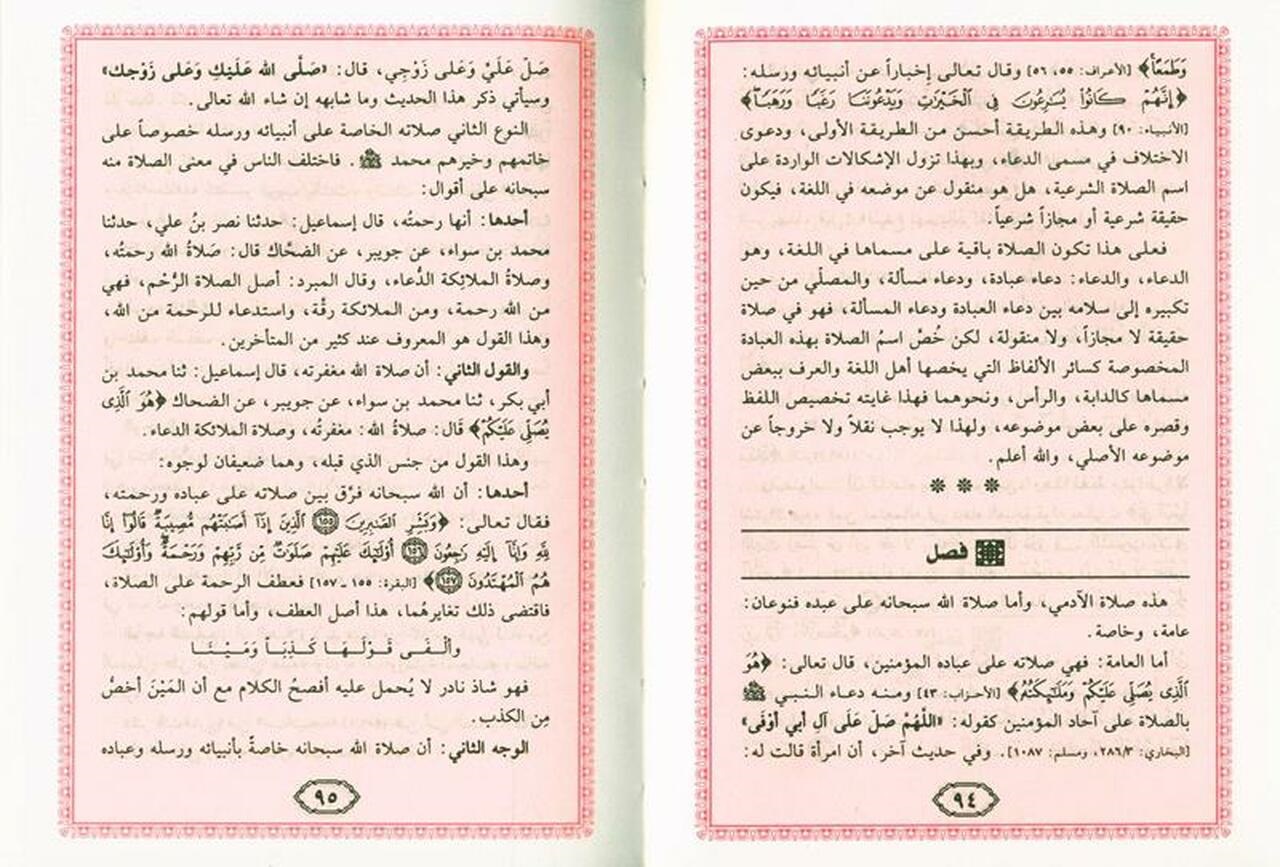 وَطَمَعاً﴾ [الأعراف: ٥٥، ٥٦] وقال تعالى إخباراً عن أنبيائه ورسله:
﴿إِنَّهُمْ كَانُوا يُسَارِعُونَ فِي الْخَيْرَاتِ وَيَدْعُونَنَا رَغَبًا وَرَهَبًا﴾
[الأنبياء: ٩٠] وهذه الطريقة أحسن من الطريقة الأولى، ودعوى
الاختلاف في مسمى الدعاء، وبهذا تزول الإشكالات الواردة على
اسم الصلاة الشرعية، هل هو منقول عن موضعه في اللغة، فيكون
حقيقة شرعية أو مجازاً شرعياً.
فعلى هذا تكون الصلاة باقية على مسماها في اللغة، وهو
الدعاء، والدعاء: دعاء عبادة، ودعاء مسألة، والمصلّي من حين
تكبيره إلى سلامه بين دعاء العبادة ودعاء المسألة، فهو في صلاة
حقيقة لا مجازاً، ولا منقولة، لكن خُصَّ اسمُ الصلاة بهذه العبادة
المخصوصة كسائر الألفاظ التي يخصها أهل اللغة والعرف ببعض
مسماها كالدابة، والرأس، ونحوهما فهذا غايته تخصيص اللفظ
وقصره على بعض موضوعه، ولهذا لا يوجب نقلاً ولا خروجاً عن
موضوعه الأصلي، والله أعلم.
* * *
فصل
هذه صلاة الآدمي، وأما صلاة الله سبحانه على عبده فنوعان:
عامة، وخاصة.
أما العامة: فهي صلاته على عباده المؤمنين، قال تعالى: ﴿هُوَ
الَّذِي يُصَلِّي عَلَيْكُمْ وَمَلَائِكَتُهُ﴾ [الأحزاب: ٤٣] ومنه دعاء النبي ﷺ
بالصلاة على آحاد المؤمنين كقوله: «اللَّهُمَّ صَلِّ عَلَى آلِ أَبي أَوْفَى»
[البخاري: ٢٨٦/٣، ومسلم: ١٠٨٧]. وفي حديث آخر، أن امرأة قالت له:
٩٤
صَلِّ عَلَيَّ وَعَلى زَوْجِي، قال: «صَلَّى الله عَلَيْكِ وَعَلى زَوْجك»
وسيأتي ذكر هذا الحديث وما شابهه إن شاء الله تعالى.
النوع الثاني صلاته الخاصة على أنبيائه ورسله خصوصاً على
خاتمهم وخيرهم محمد ﷺ. فاختلف الناس في معنى الصلاة منه
سبحانه على أقوال:
أحدها: أنها رحمتُه، قال إسماعيل: حدثنا نصر بنُ علي، حدثنا
محمد بن سواء، عن جويبر، عن الضحَّاك قال: صَلاةُ الله رحمتُه،
وصلاةُ الملائِكة الدُّعاء، وقال المبرد: أصل الصلاة الرُّحْم، فهي
من الله رحمة، ومن الملائكة رقَّة، واستدعاء للرحمة من الله،
وهذا القول هو المعروف عند كثير من المتأخرين.
والقول الثاني: أن صلاة الله مغفرته، قال إسماعيل: ثنا محمد بن
أبي بكر، ثنا محمد بن سواء، عن جويبر، عن الضحاك ﴿هُوَ الَّذِي
يُصَلِّي عَلَيْكُمْ﴾ قَال: صلاةُ الله: مغفرتُه، وصلاة الملائكة الدعاء.
وهذا القول من جنس الذي قبله، وهما ضعيفان لوجوه:
أحدها: أن الله سبحانه فرَّق بين صلاته على عباده ورحمته،
فقال تعالى: ﴿وَبَشِّرِ الصَّابِرِينَ ١٥٥ الَّذِينَ إِذَا أَصَابَتْهُم مُّصِيبَةٌ قَالُوا إِنَّا
لِلَّهِ وَإِنَّا إِلَيْهِ رَاجِعُونَ ١٥٦ أُولَٰئِكَ عَلَيْهِمْ صَلَوَاتٌ مِّن رَّبِّهِمْ وَرَحْمَةٌ وَأُولَٰئِكَ
هُمُ الْمُهْتَدُونَ ١٥٧﴾ [البقرة: ١٥٥ ـ ١٥٧] فعطف الرحمة على الصلاة،
فاقتضى ذلك تغايرهُما، هذا أصل العطف، وأما قولهم:
وألْفَى قَوْلَهَا كَذِبَاً وَمَيْنَا
فهو شاذ نادر لا يُحمل عليه أفصحُ الكلام مع أن المَيْنَ أخصُّ
مِن الكذب.
الوجه الثاني: أن صلاة الله سبحانه خاصةً بأنبيائه ورسله وعباده
٩٥